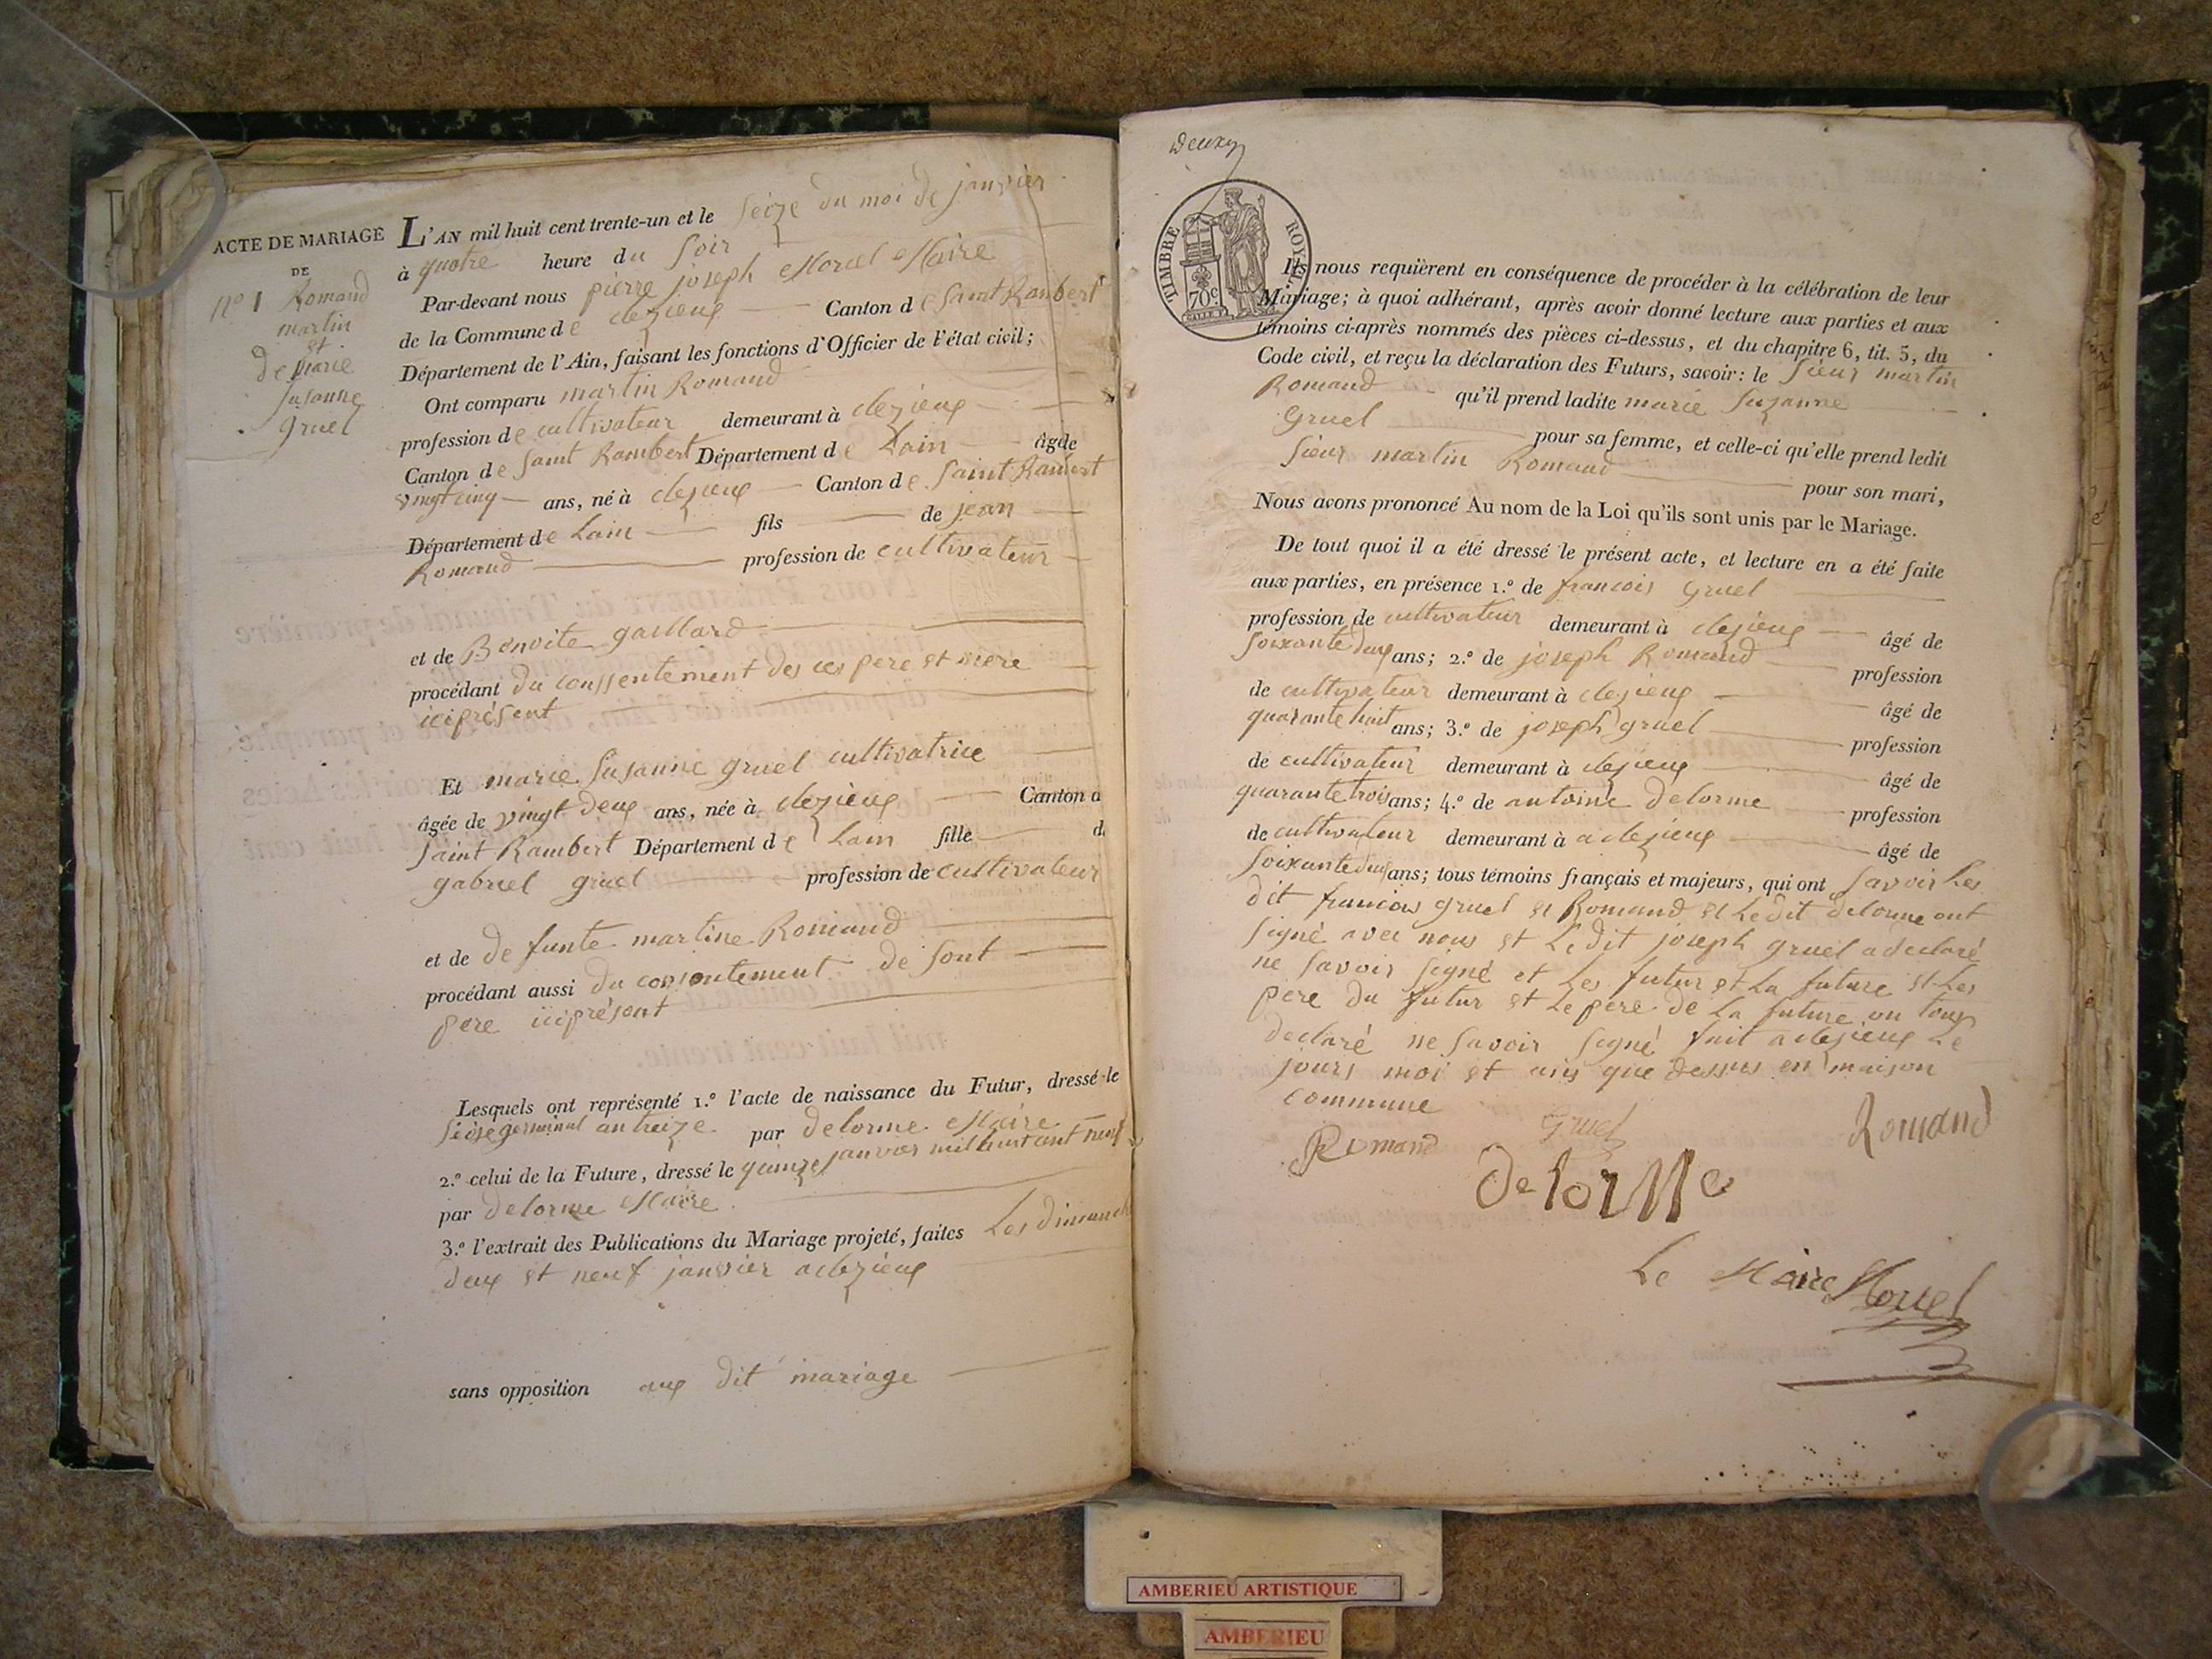 ACTE DE MARIAGE
DE
n° 1 Romand
martin
et
De marie
Susanne
gruel
L'AN mil huit cent trente-un et le Seize du moi de janvier
à quatre heure du Soir
Par-devant nous pierre joseph Morel Maire
de la Commune de clezieux Canton de Saint Rambert
Département de l'Ain, faisant les fonctions d'Officier de l'état civil;
Ont comparu martin Romand
profession de cultivateur demeurant à clezieux
Canton de Saint Rambert Département de Lain âgé de
vingt cinq ans, né à clezieux Canton de Saint Rambert
Département de Lain fils de jean
Romand profession de cultivateur
et de Benoite gaillard
procédant du conssentement des ces pere et mere
iciprésent
Et marie Susanne gruel cultivatrice
âgée de vingt deux ans, née à clezieux Canton d
Saint Rambert Département de Lain fille de
gabriel gruel profession de cultivateur
et de de funte martine Romand
procédant aussi du consentement de sont
pere iciprésent
Lesquels ont représenté 1.° l'acte de naissance du Futur, dressé le
germinal an treize par delorme Maire
2.° celui de la Future, dressé le quinze janvier mil huit cent neuf
par delorme Maire
3.° l'extrait des Publications du Mariage projeté, faites Les dimanch
deux et neuf janvier a clezieux
sans opposition aux dit mariage
deux
TIMBRE ROYAL
70c
Ils nous requièrent en conséquence de procéder à la célébration de leur
Mariage; à quoi adhérant, après avoir donné lecture aux parties et aux
témoins ci-après nommés des pièces ci-dessus, et du chapitre 6, tit. 5, du
Code civil, et reçu la déclaration des Futurs, savoir: le Sieur martin
Romand qu'il prend ladite marie Suzanne
gruel pour sa femme, et celle-ci qu'elle prend ledit
Sieur martin Romand pour son mari,
Nous avons prononcé Au nom de la Loi qu'ils sont unis par le Mariage.
De tout quoi il a été dressé le présent acte, et lecture en a été faite
aux parties, en présence 1.° de francois gruel
profession de cultivateur demeurant à clezieux âgé de
soixante deux ans; 2.° de joseph Romand profession
de cultivateur demeurant à clezieux âgé de
quarante huit ans; 3.° de joseph gruel profession
de cultivateur demeurant à clezieux âgé de
quarante trois ans; 4.° de antoine delorme profession
de cultivateur demeurant à a clezieux âgé de
soixante deux ans; tous témoins français et majeurs, qui ont savoir Les
dit francois gruel et Romand et Ledit delorme ont
signé avec nous et Ledit joseph gruel a declaré
ne savoir signé et Les futur et La future et Les
pere du futur et Le pere de La future on tous
declaré ne savoir signé fait a clezieux Le
jours moi et ans que dessus en maison
commune
Romand Gruel Romand
Delorme
Le Maire Morel
AMBERIEU ARTISTIQUE
AMBERIEU